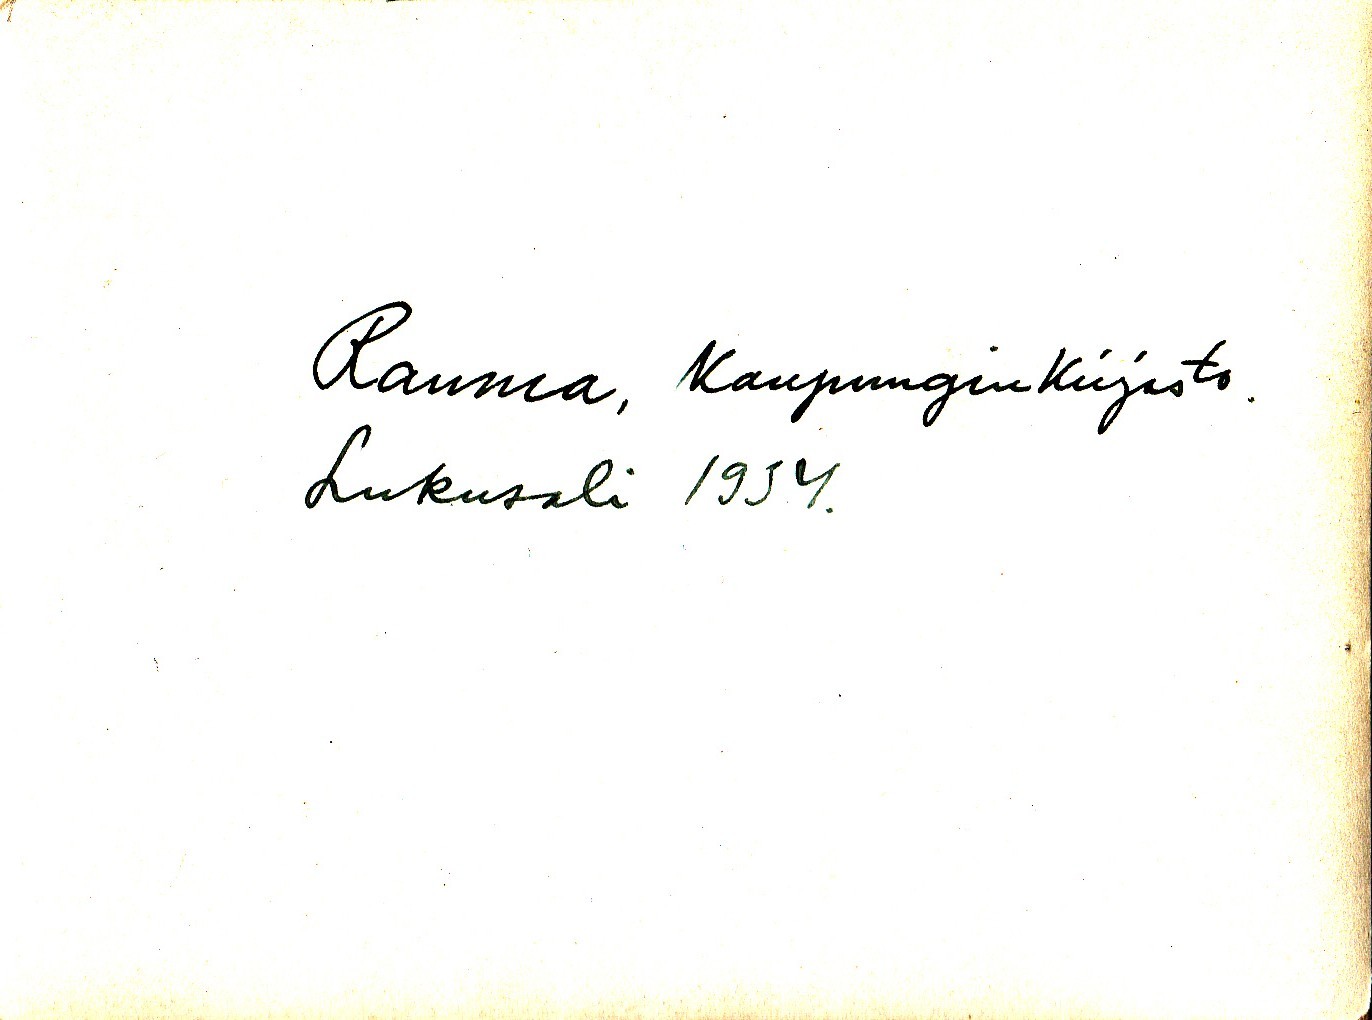 Rauma, Kaupunginkirjasto.
Lukusali 1934.